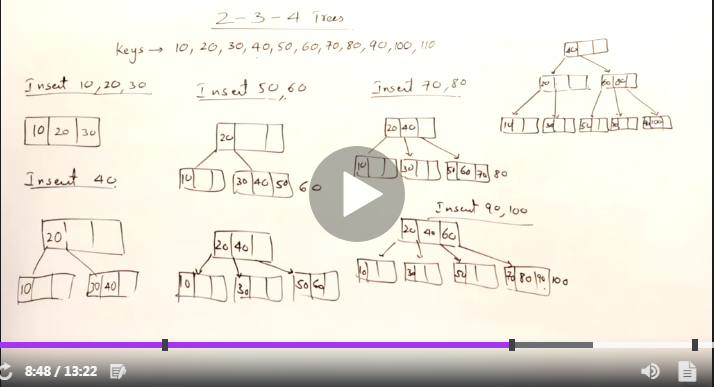 2-3-4 Trees
Keys → 10, 20, 30, 40, 50, 60, 70, 80, 90, 100, 110
Insert 10, 20, 30
10 20 30
Insert 40
20
10
30 40
Insert 50, 60
20
10
30 40 50 60
20 40
10
30
50 60
Insert 70, 80
20 40
10
30
50 60 70 80
Insert 90, 100
20 40 60
10
30
50
70 80 90 100
40
20
60 80
10
30
50
70
90 100
8:48 / 13:22